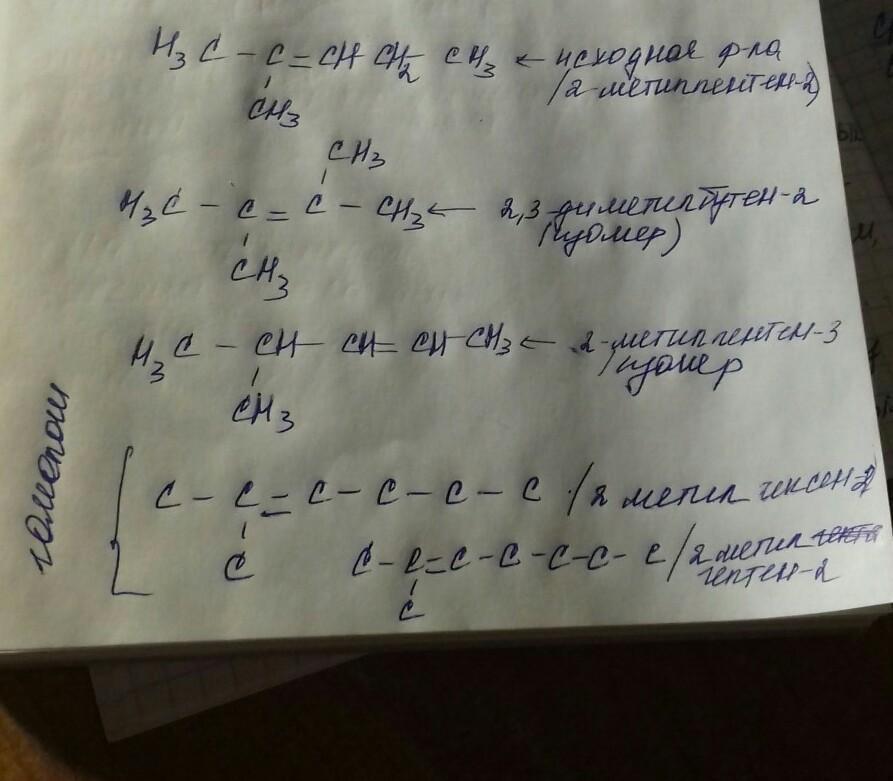 H₃C – C = CH CH₂ CH₃ ← исходная ф-ла
CH₃
/2-метилпентен-2)
CH₃
H₃C – C = C – CH₃ ← 2,3-диметилбутен-2
CH₃
(изомер)
H₃C – CH – CH = CH – CH₃ ← 2-метилпентен-3
CH₃
/изомер
гомологи
C – C = C – C – C – C /2 метил гексен-2)
C
C – C = C – C – C – C – C /2 метил
C
гептен-2